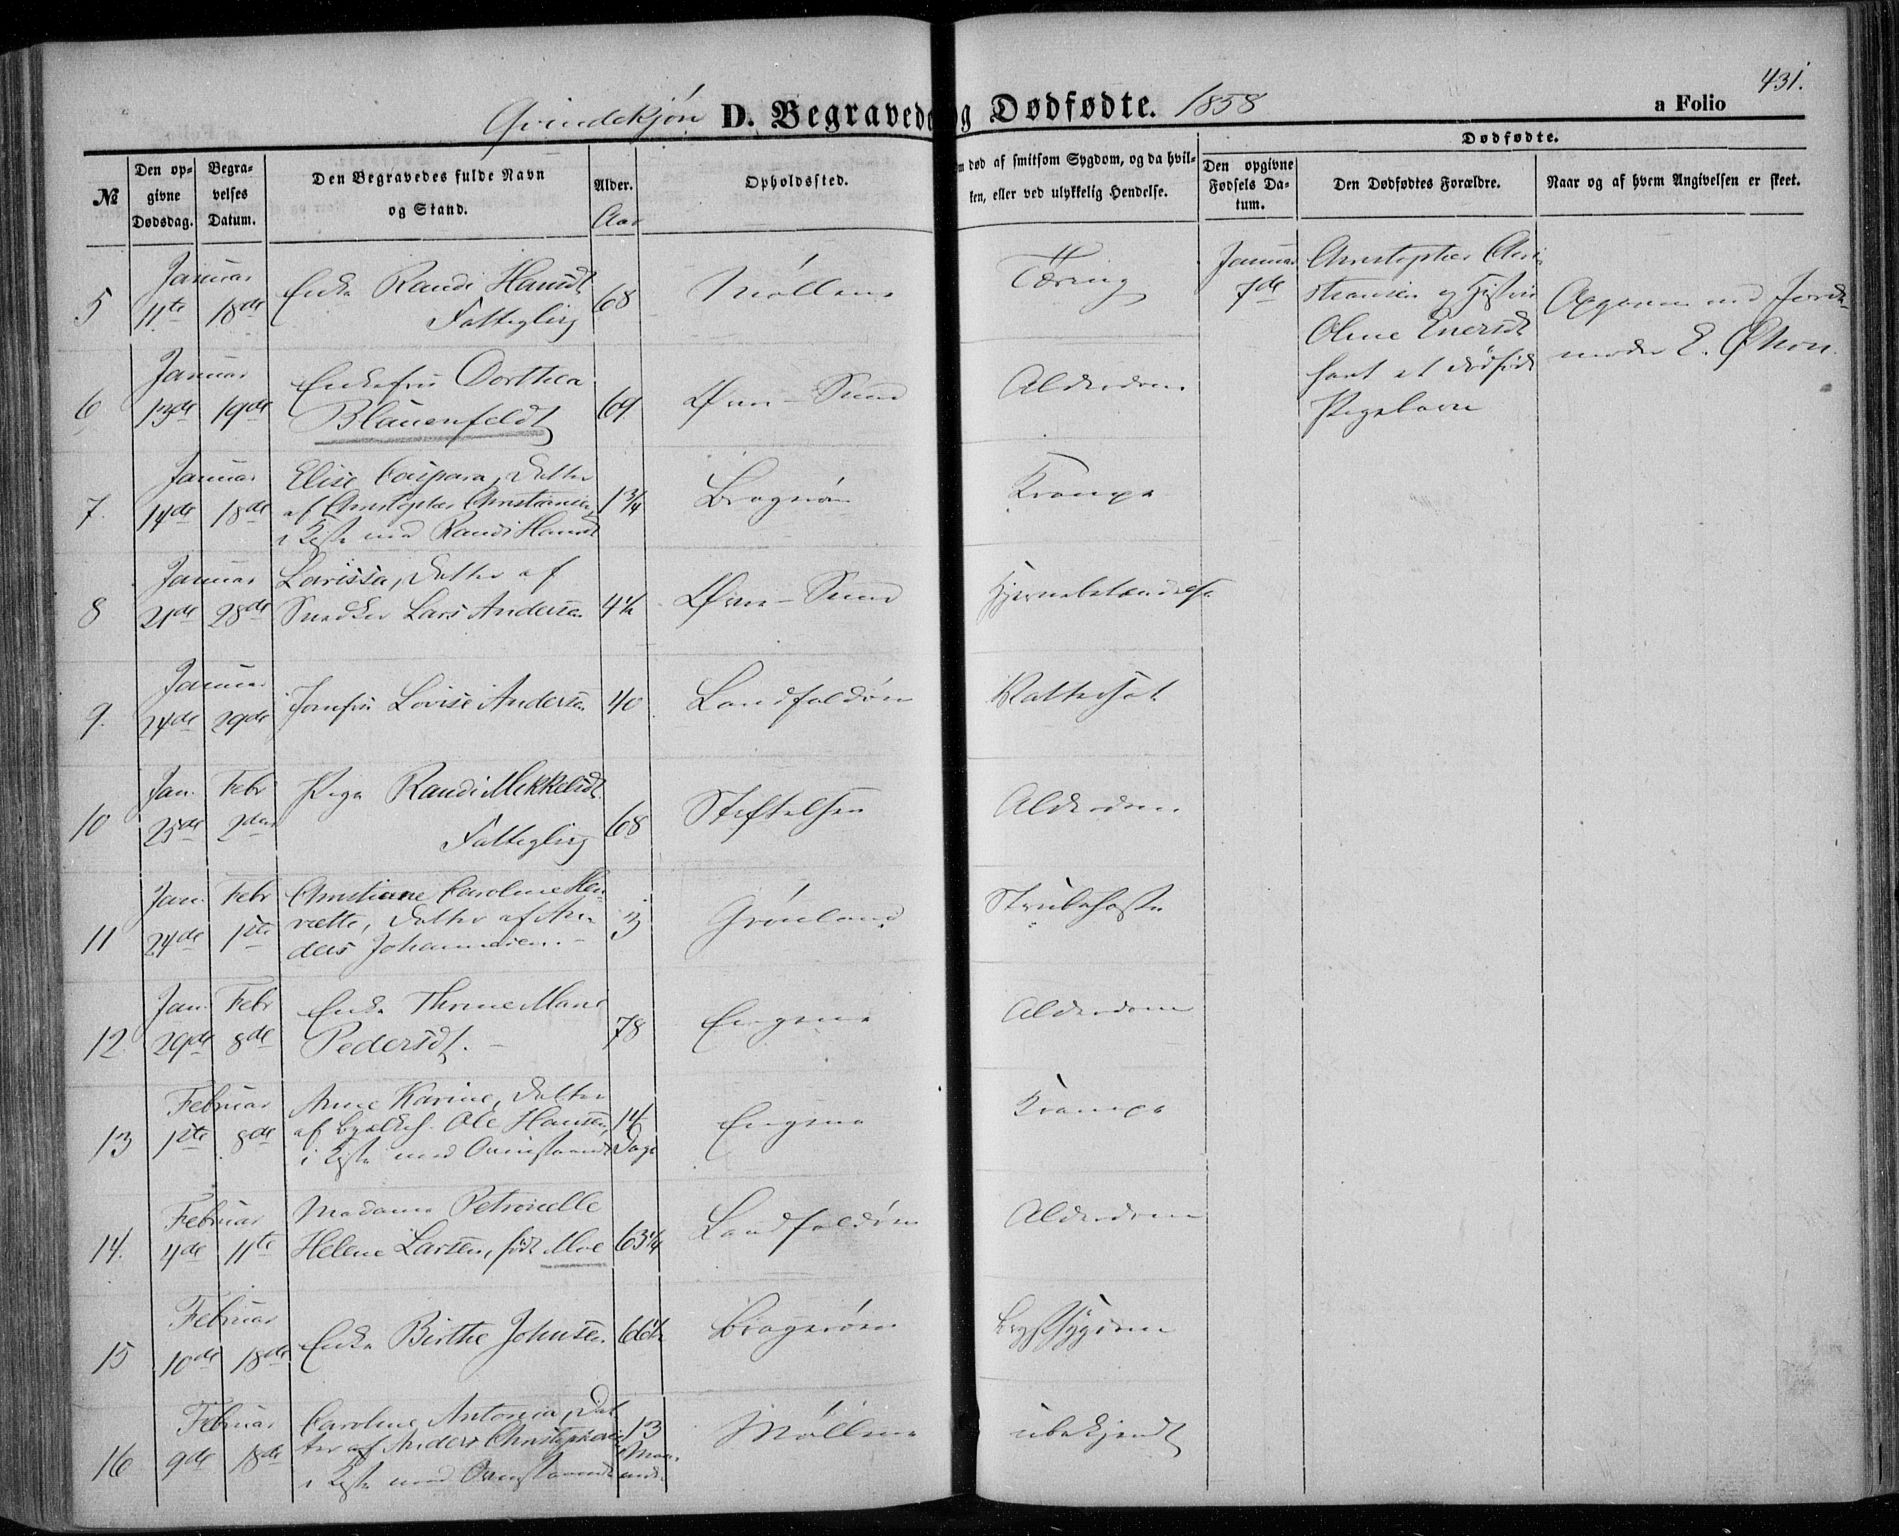 431.
Qvindekjøn D. Begravede og Dødfødte. 1858 a Folio
Dødfødte.
№
Den op-
givne
Dødsdag.
Begra-
velses
Datum.
Den Begravedes fulde Navn
og Stand.
Alder.
Aar
Opholdssted.
død af smitsom Sygdom, og da hvil-
ken, eller ved ulykkelig Hendelse.
Den opgivne
Fødsels Da-
tum.
Den Dødfødtes Forældre.
Naar og af hvem Angivelsen er skeet.
5 Januar 11te 18de Enke Randi Hansdt
Fattiglig 68 Møllen Tæring
Januar 7de Christopher Chri
stiansen og Hustru
Oline Enersdt
havt et dødfødt
Pigebarn
Opgaven ved Jorde-
moder E.
6 Januar 13de 19de Enkefru Dorthea
Blauenfeldt 69 Øvre-Sund Alderdom
7. Januar 14de 18de Elise Caspara, Datter
af Christopher Christiansen
i Kiste med Randi Hansdt 1 3/4 Bragerøen Krampe
8 Januar 21de 28de Lovissa, Datter af
Snedker Lars Andersen 4 1/2 Øvre-Sund Hjernebetændelse
9. Januar 24de 29de Jomfru Lovise Andersen 40 Landfaldøen Vattersot
10 Jan. 25de Febr 2den Pige Randi Mikkelsdt.
Fattiglig 68 Stiftelsen Alderdom
11 Jan. 24de Febr 1ste Christiane Caroline Hen
riette, Datter af An-
ders Johannesen. 3 Grønland Strubehoste
12 Jan. 29de Febr 8de Enke Thrine Marie
Pedersdt. 78 Engene Alderdom
13 Februar 1ste 8de Anne Karine, Datter
af Ole Hansen,
i Kiste med Ovenstaaende 14
Dage Engene Krampe
14. Februar 4de 11te Madame Petronelle
Helene Larsen, født Moe 63 1/4 Landfaldøen Alderdom
15 Februar 10de 18de Enke Birthe Johnsen. 66 1/2 Bragerøen Brystsygdom
16 Februar 9de 18de Caroline Antonia, Dat
ter af Anders Christophersen
i Kiste med Ovenstaaende 13
Maa-
neder Møllen ubekjendt